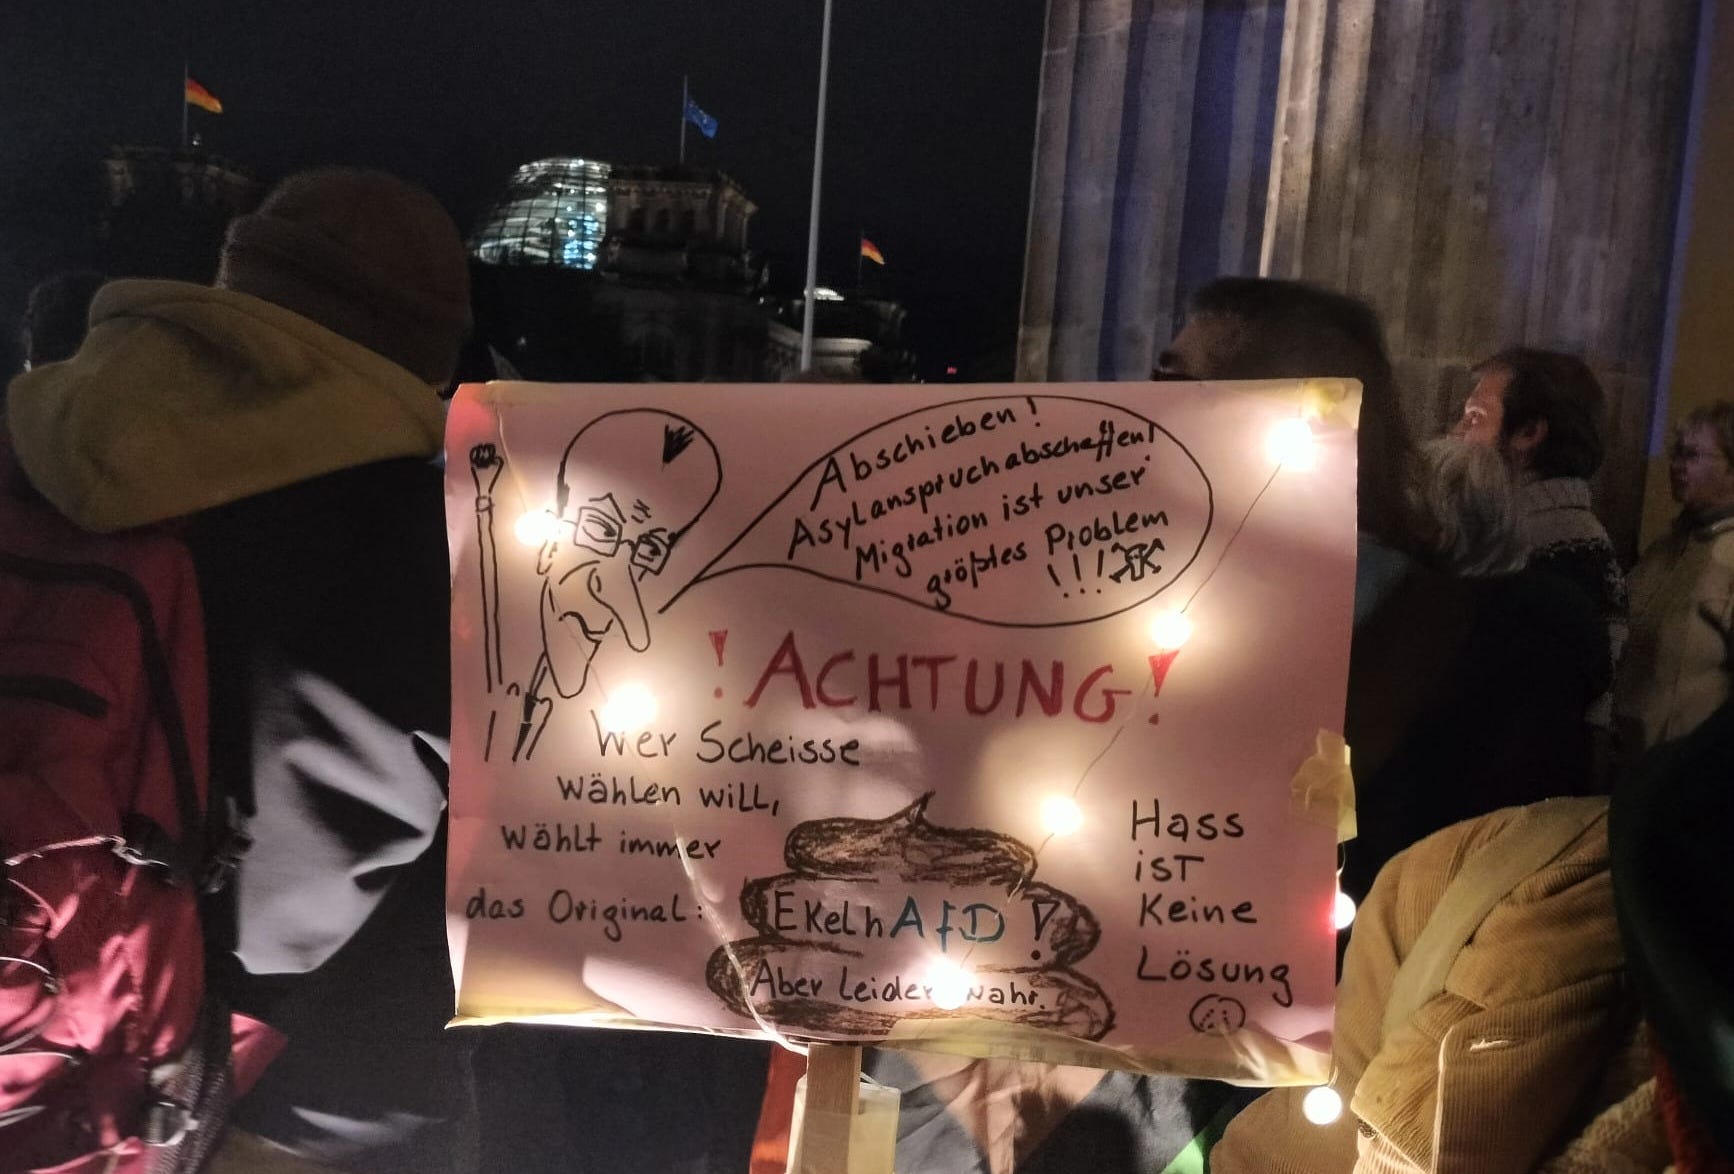 Abschieben!
Asylanspruch abschaffen!
Migration ist unser
größtes Problem
!!!
! ACHTUNG!
Wer Scheisse
wählen will,
wählt immer
das Original:
EKelhAfD!
Aber leider wahr.
Hass
iST
Keine
Lösung